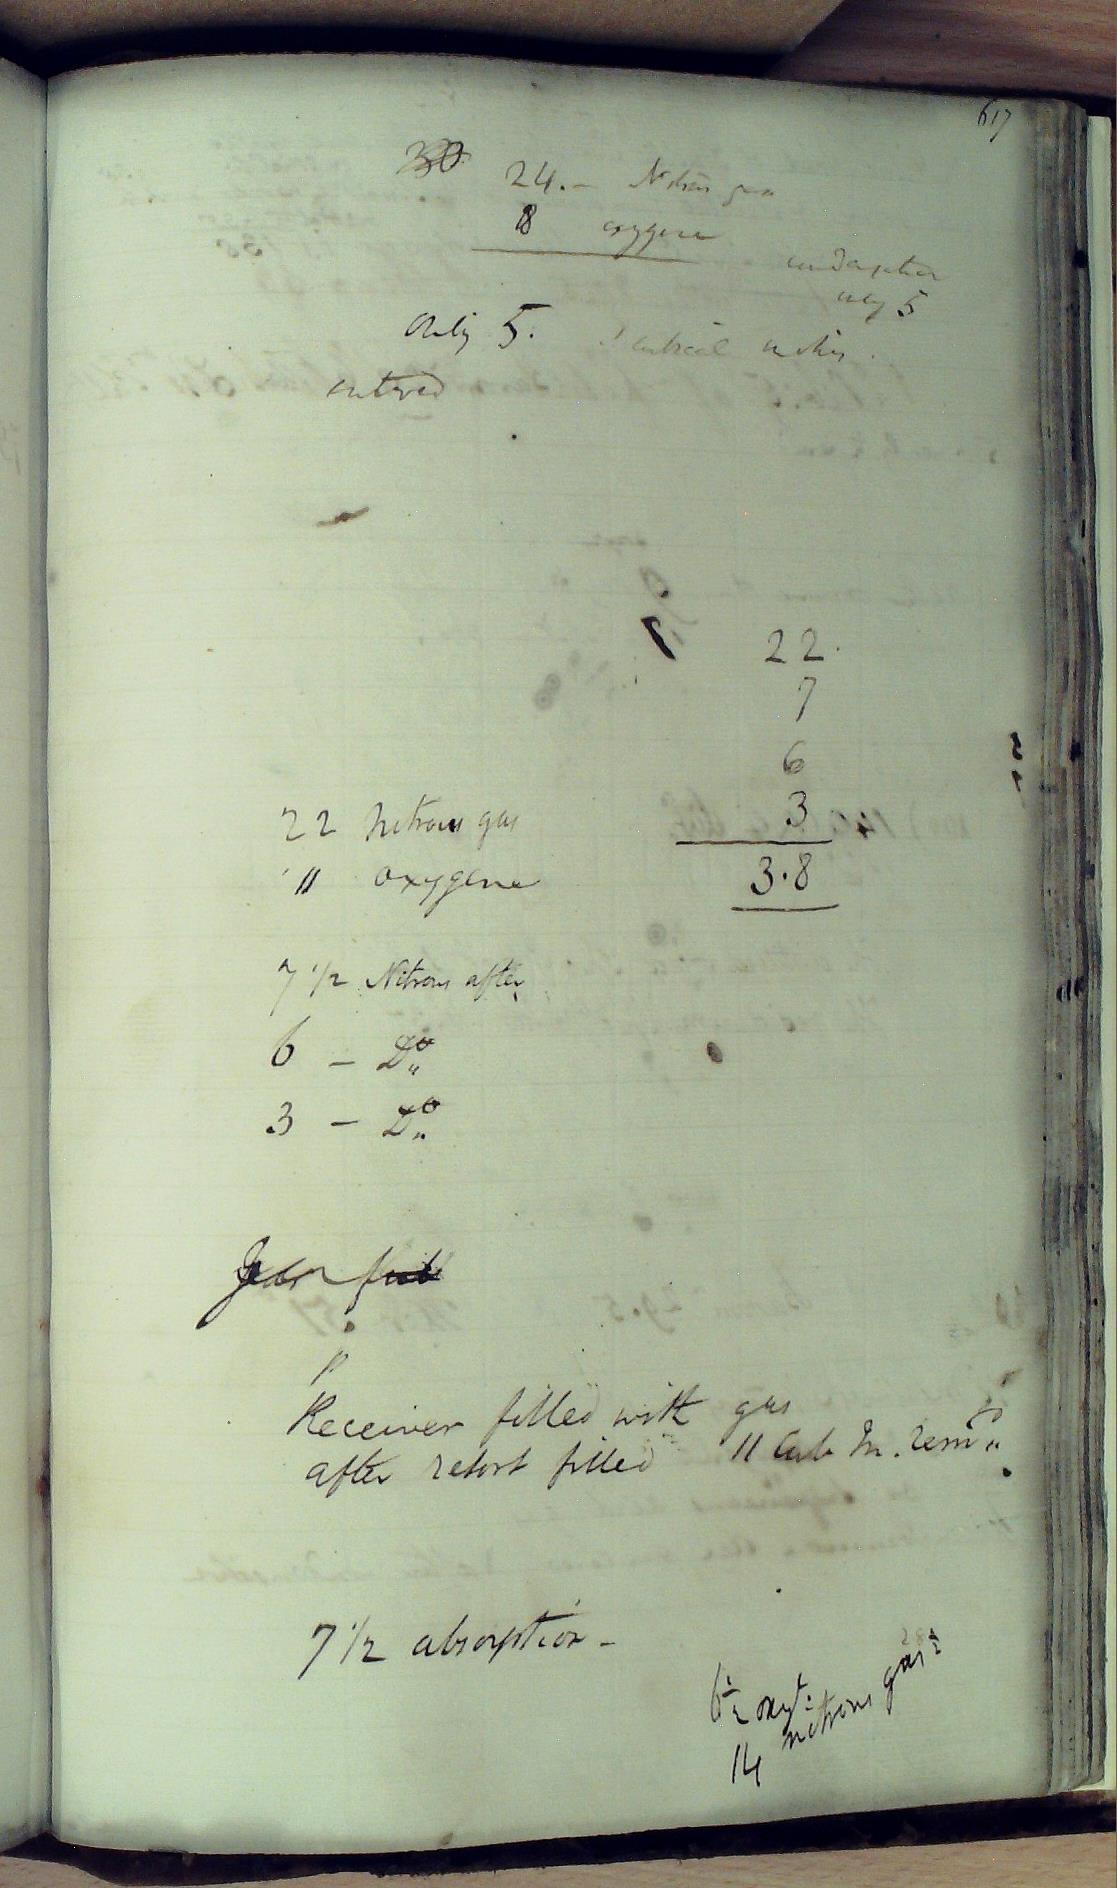 617
30 24. - Nitrous gas
8 oxygene
only 5
Only 5. cubical inches.
entered
22.
7
6
3
3.8
22 Nitrous gas
11 oxygene
7 1/2 Nitrous after
6 - Do
3 - Do
Receiver filled with gas
after retort filled 11 Cub In. remg
7 1/2 absorption -
6 1/2 oxy:
14 nitrous gas